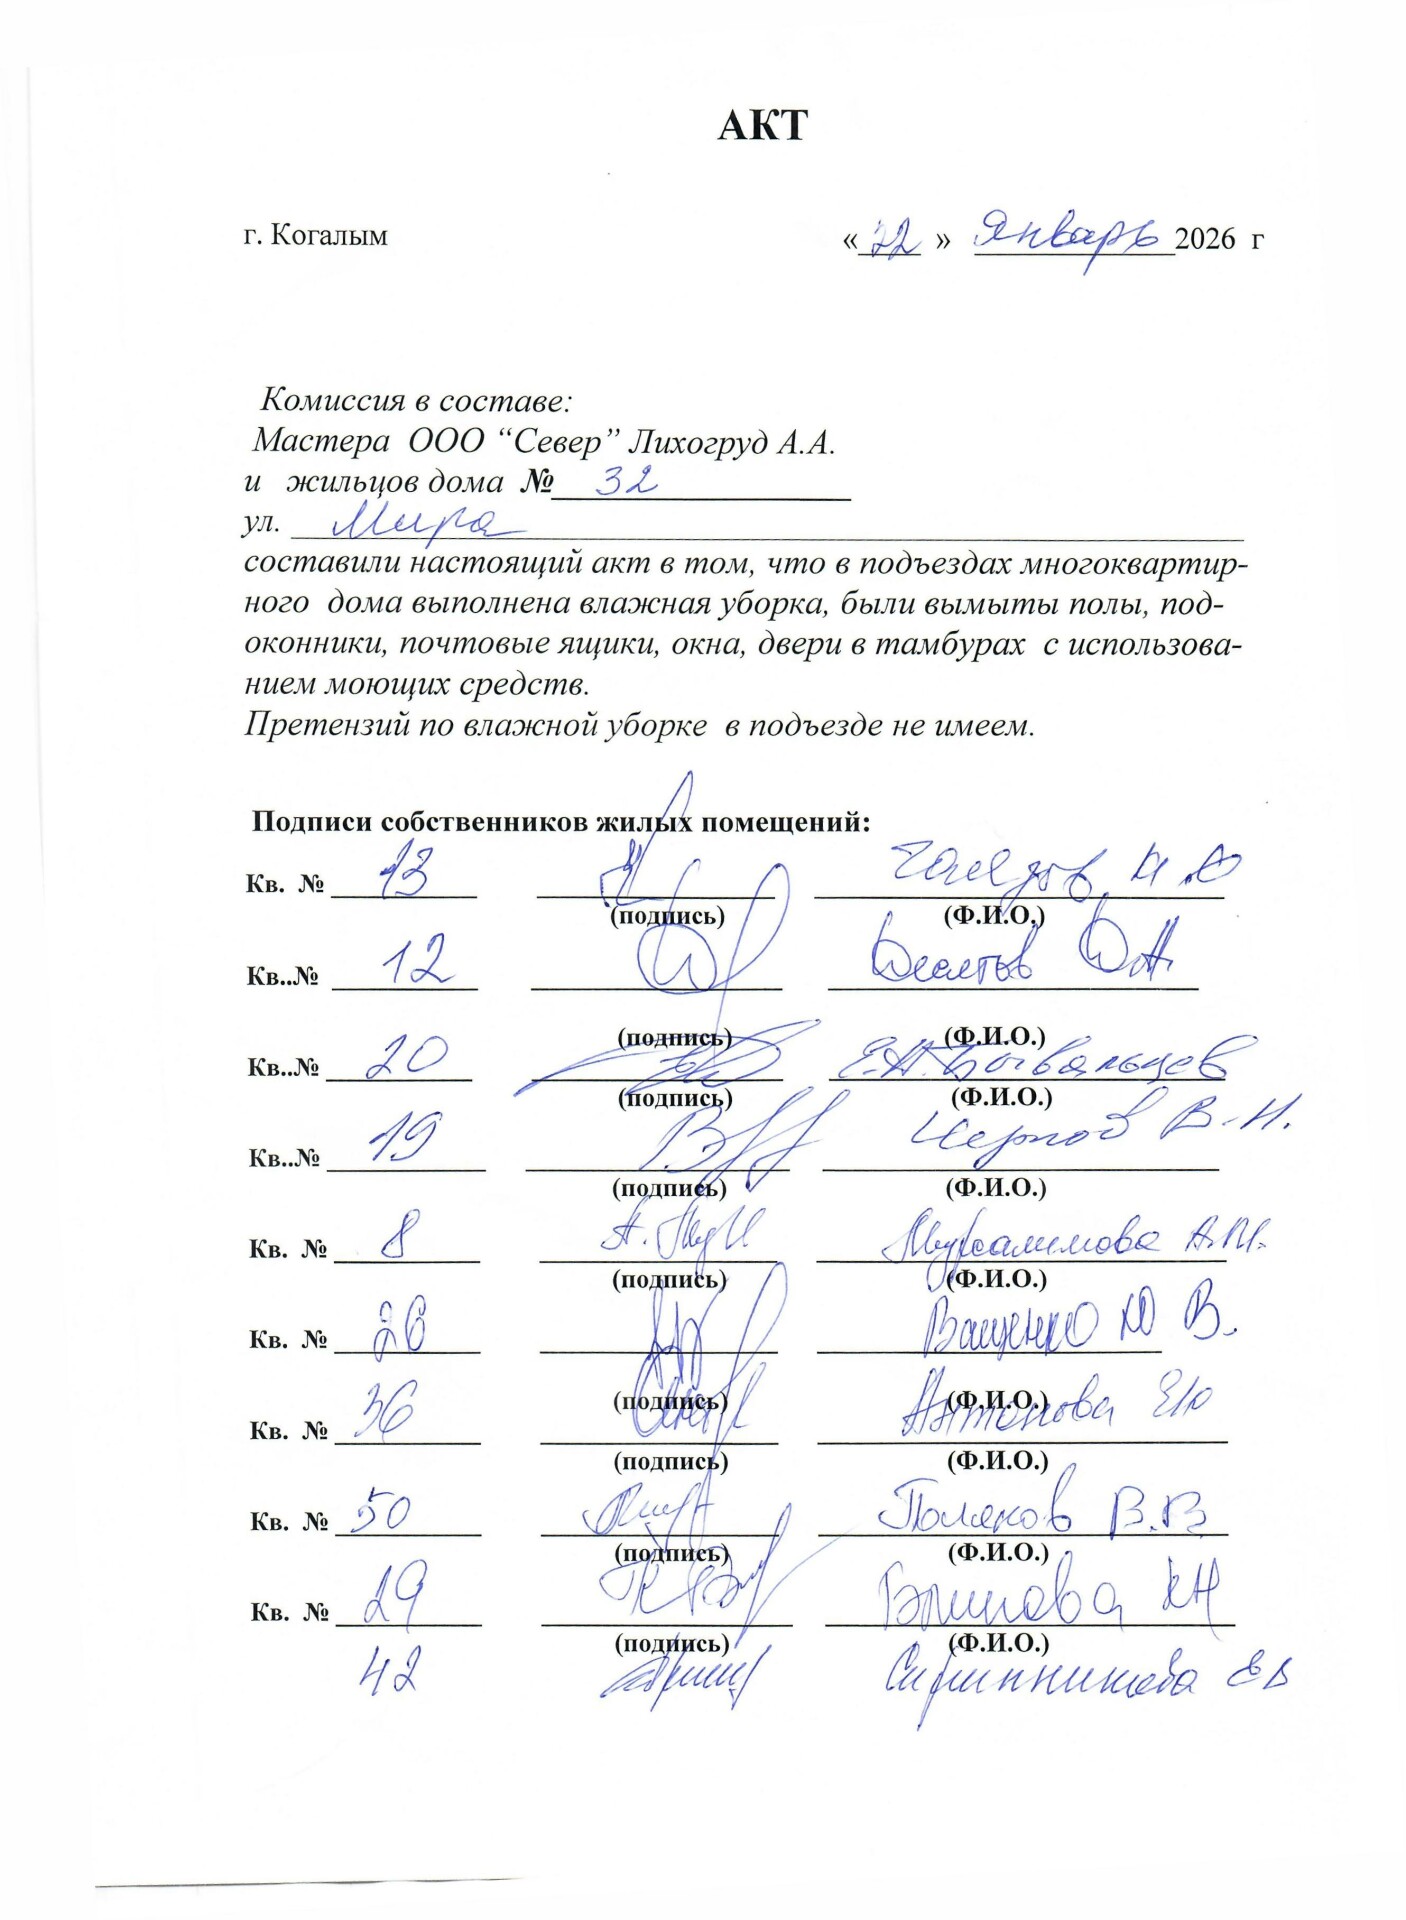 АКТ
г. Когалым «22» Январь 2026 г
Комиссия в составе:
Мастера ООО “Север” Лихогруд А.А.
и жильцов дома № 32
ул. Мира
составили настоящий акт в том, что в подъездах многоквартир-
ного дома выполнена влажная уборка, были вымыты полы, под-
оконники, почтовые ящики, окна, двери в тамбурах с использова-
нием моющих средств.
Претензий по влажной уборке в подъезде не имеем.
Подписи собственников жилых помещений:
Кв. № 13
(подпись) (Ф.И.О.)
Кв..№ 12
(подпись) (Ф.И.О.)
Кв..№ 20 Е.А. Бывальцев
(подпись) (Ф.И.О.)
Кв..№ 19 Чернов В.Н.
(подпись) (Ф.И.О.)
Кв. № 8 Мурсалимова А.М.
(подпись) (Ф.И.О.)
Кв. № 26 Ващенко Ю В.
(подпись) (Ф.И.О.)
Кв. № 36 Антонова ЕЮ
(подпись) (Ф.И.О.)
Кв. № 50 Поляков В.В.
(подпись) (Ф.И.О.)
Кв. № 29
(подпись) (Ф.И.О.)
42